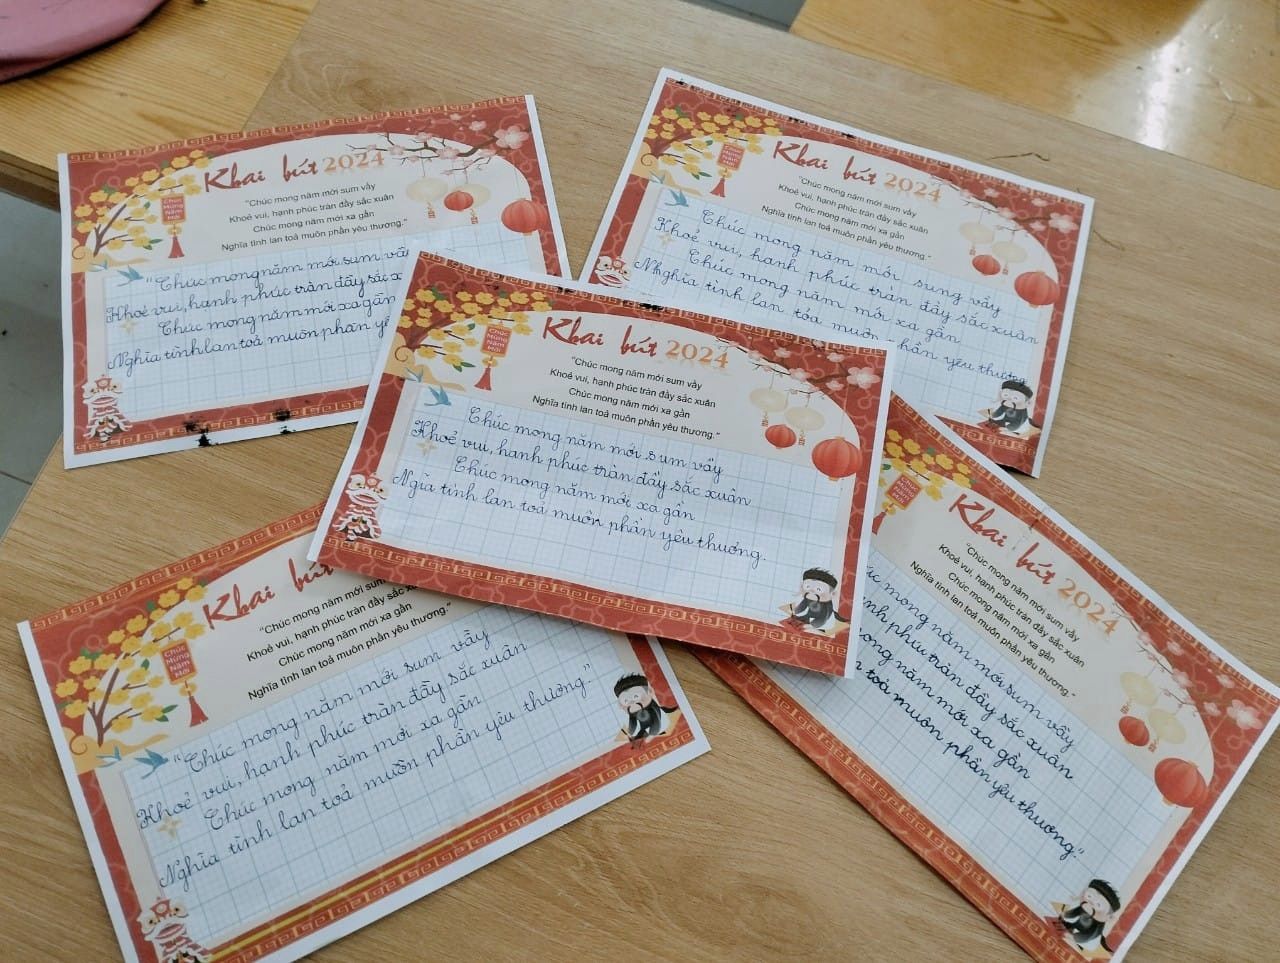 Khai bút 2024
Chúc
Mừng
Năm
Mới
"Chúc mong năm mới sum vầy
Khoẻ vui, hạnh phúc tràn đầy sắc xuân
Chúc mong năm mới xa gần
Nghĩa tình lan toả muôn phần yêu thương."
"Chúc mong năm mới sum vầy
Khoẻ vui, hạnh phúc tràn đầy sắc x
Chúc mong năm mới xa gần
Nghĩa tình lan toả muôn phần yê
Khai bút 2024
Chúc
Mừng
Năm
Mới
"Chúc mong năm mới sum vầy
Khoẻ vui, hạnh phúc tràn đầy sắc xuân
Chúc mong năm mới xa gần
Nghĩa tình lan toả muôn phần yêu thương."
Chúc mong năm mới sung vầy
Khoẻ vui, hạnh phúc tràn đầy sắc xuân
Chúc mong năm mới xa gần
Nhghĩa tình lan tỏa muôn phần yêu thương
Khai bút 2024
Chúc
Mừng
Năm
Mới
"Chúc mong năm mới sum vầy
Khoẻ vui, hạnh phúc tràn đầy sắc xuân
Chúc mong năm mới xa gần
Nghĩa tình lan toả muôn phần yêu thương."
Chúc mong năm mới sum vầy
Khoẻ vui, hạnh phúc tràn đầy sắc xuân
Chúc mong năm mới xa gần
Ngĩa tình lan toả muôn phần yêu thương.
Khai bút
Chúc
Mừng
Năm
Mới
"Chúc mong năm mới sum
Khoẻ vui, hạnh phúc tràn đầy sắc xu
Chúc mong năm mới xa gần
Nghĩa tình lan toả muôn phần yêu thương."
"Chúc mong năm mới sum vầy
Khoẻ vui, hạnh phúc tràn đầy sắc xuân
Chúc mong năm mới xa gần
Nghĩa tình lan toả muôn phần yêu thương."
Khai bút 2024
Chúc
Mừng
Năm
Mới
"Chúc mong năm mới sum vầy
Khoẻ vui, hạnh phúc tràn đầy sắc xuân
Chúc mong năm mới xa gần
Nghĩa tình lan toả muôn phần yêu thương."
úc mong năm mới sum vầy
ạnh phúc tràn đầy sắc xuân
mong năm mới xa gần
toả muôn phần yêu thương."